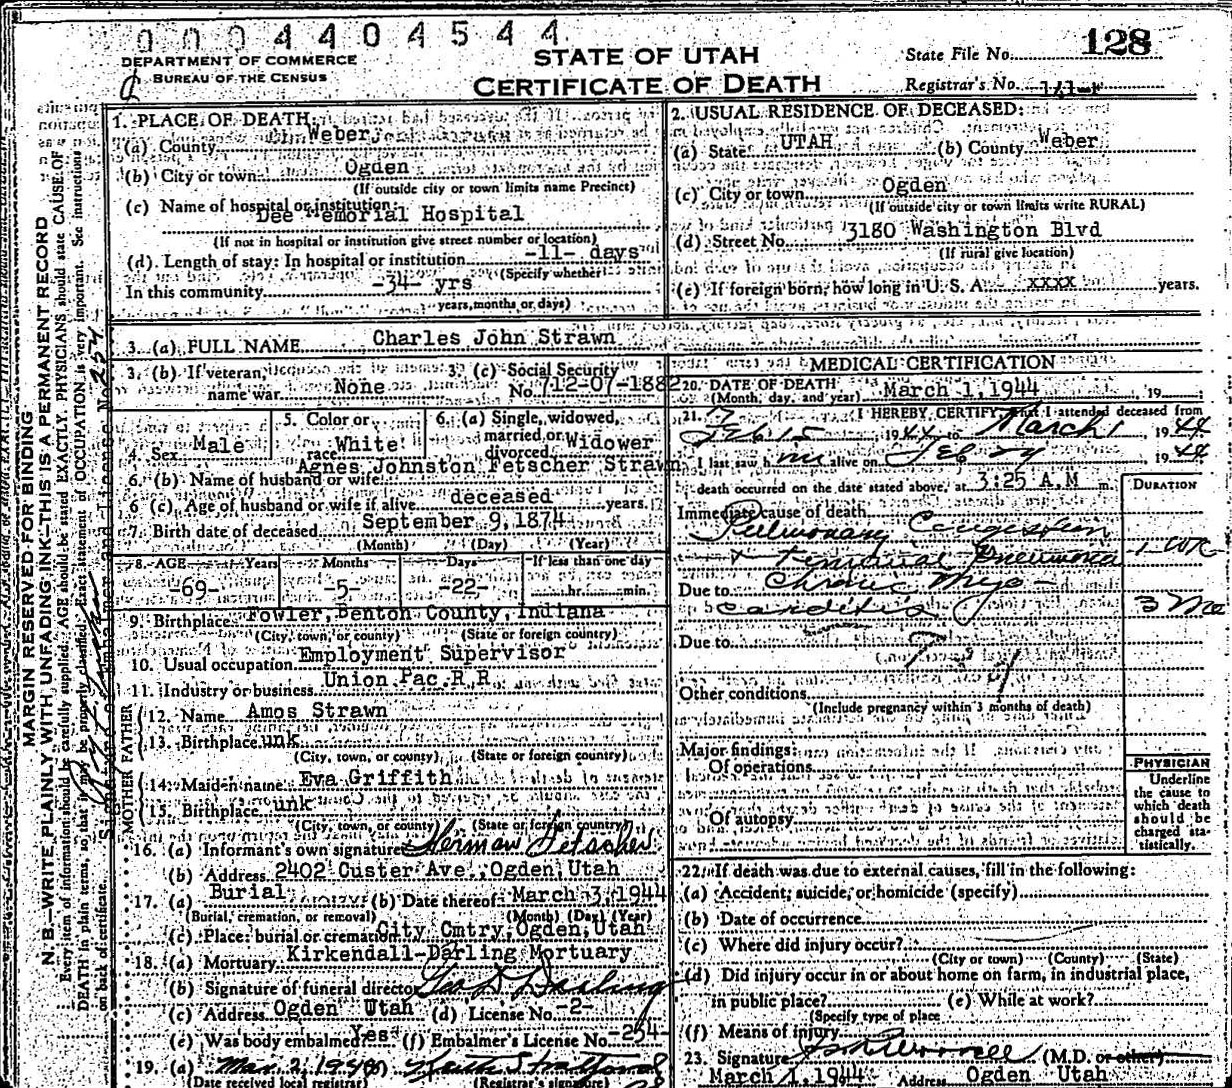 0 0 0 4 4 0 4 5 4 4
DEPARTMENT OF COMMERCE
BUREAU OF THE CENSUS
STATE OF UTAH
CERTIFICATE OF DEATH
State File No. 128
Registrar's No.
MARGIN RESERVED FOR BINDING
N. B.—WRITE PLAINLY, WITH UNFADING INK—THIS IS A PERMANENT RECORD
Every item of information should be carefully supplied. AGE should be stated EXACTLY. PHYSICIANS should state CAUSE OF
DEATH in plain terms, so that it may be properly classified. Exact statement of OCCUPATION is very important. See instructions
on back of certificate.
1. PLACE OF DEATH:
(a) County Weber
(b) City or town Ogden
(If outside city or town limits name Precinct)
(c) Name of hospital or institution:
Dee Memorial Hospital
(If not in hospital or institution give street number or location)
(d) Length of stay: In hospital or institution -11- days
(Specify whether
In this community -34- yrs
years, months or days)
2. USUAL RESIDENCE OF DECEASED:
(a) State UTAH (b) County Weber
(c) City or town Ogden
(If outside city or town limits write RURAL)
(d) Street No. 3180 Washington Blvd
(If rural give location)
(e) If foreign born, how long in U. S. A. xxxx years.
3. (a) FULL NAME Charles John Strawn
3. (b) If veteran,
name war None
3. (c) Social Security
No. 712-07-1882
4. Sex Male
5. Color or
race White
6. (a) Single, widowed,
married, or
divorced Widower
6. (b) Name of husband or wife Agnes Johnston Fetscher Strawn
6 (c). Age of husband or wife if alive deceased years.
7. Birth date of deceased September 9, 1874
(Month) (Day) (Year)
8. AGE Years Months Days If less than one day
-69- -5- -22- hr. min.
9. Birthplace Fowler, Benton County, Indiana
(City, town, or county) (State or foreign country)
10. Usual occupation Employment Supervisor
11. Industry or business Union Pac. R R
FATHER
12. Name Amos Strawn
13. Birthplace unk
(City, town, or county) (State or foreign country)
MOTHER
14. Maiden name Eva Griffith
15. Birthplace unk
(City, town, or county) (State or foreign country)
16. (a) Informant's own signature Herman Fetscher
(b) Address 2402 Custer Ave., Ogden, Utah
17. (a) Burial (b) Date thereof March 3, 1944
(Burial, cremation, or removal) (Month) (Day) (Year)
(c) Place: burial or cremation City Cmtry, Ogden, Utah
18. (a) Mortuary Kirkendall-Darling Mortuary
(b) Signature of funeral director Geo D Darling
(c) Address Ogden Utah (d) License No. -2-
(e) Was body embalmed? Yes (f) Embalmer's License No. -254-
19. (a) Mar. 2, 194 Keith Stratford
(Date received local registrar) (Registrar's signature)
MEDICAL CERTIFICATION
20. DATE OF DEATH March 1, 1944, 19
(Month, day, and year)
21. I HEREBY CERTIFY, that I attended deceased from
Feb 15 1944 to March 1 1944
I last saw him alive on Feb 29 1944
death occurred on the date stated above, at 3:25 A.M m.
DURATION
Immediate cause of death
Pulmonary Congestion
+ terminal Pneumonia 1 wk
Due to Chronic Myo-
carditis 3 mo
Due to
Other conditions
(Include pregnancy within 3 months of death)
Major findings:
Of operations
Of autopsy
PHYSICIAN
Underline
the cause to
which death
should be
charged sta-
tistically.
22. If death was due to external causes, fill in the following:
(a) Accident, suicide, or homicide (specify)
(b) Date of occurrence
(c) Where did injury occur?
(City or town) (County) (State)
(d) Did injury occur in or about home on farm, in industrial place,
in public place? (e) While at work?
(Specify type of place
(f) Means of injury
23. Signature (M.D. or other)
March 1, 1944 Address Ogden Utah